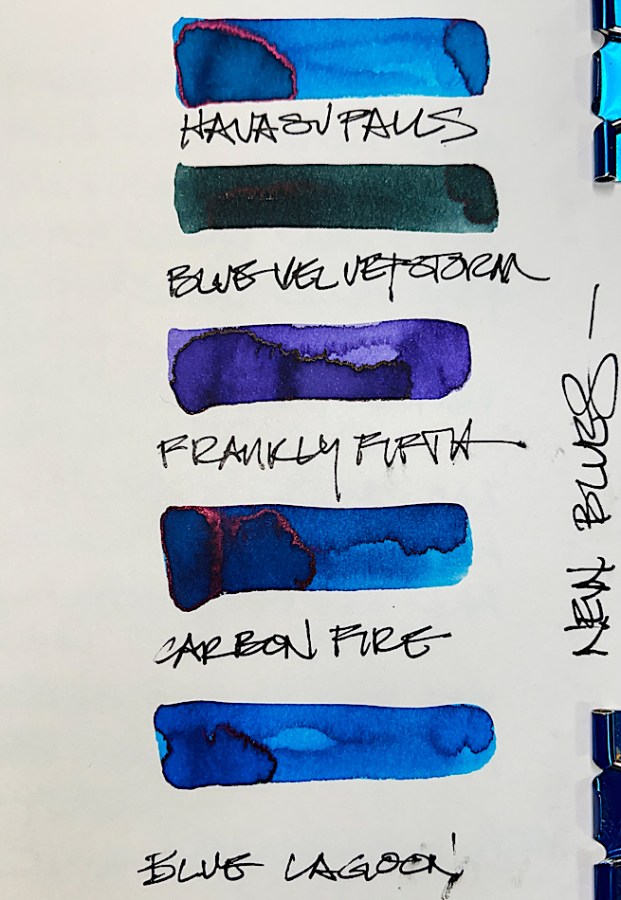 HAVASU FALLS
BLUE VELVET STORM
FRANKLY FIFTH
CARBON FIRE
BLUE LAGOON
NEW BLUES —